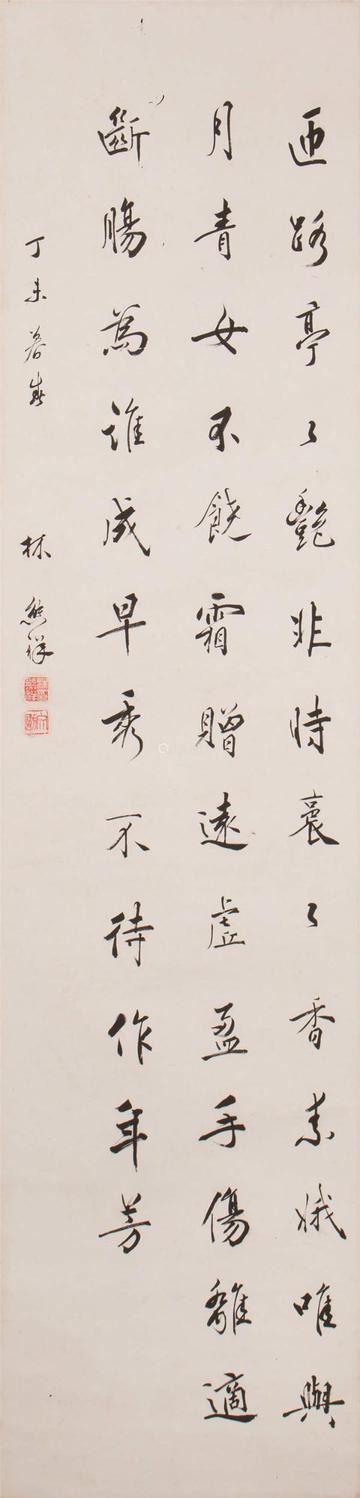 迊路亭〻艷非時裛〻香素娥唯與
月青女不饒霜贈遠虛盈手傷離適
斷腸為誰成早秀不待作年芳
丁未暮春 林熊祥